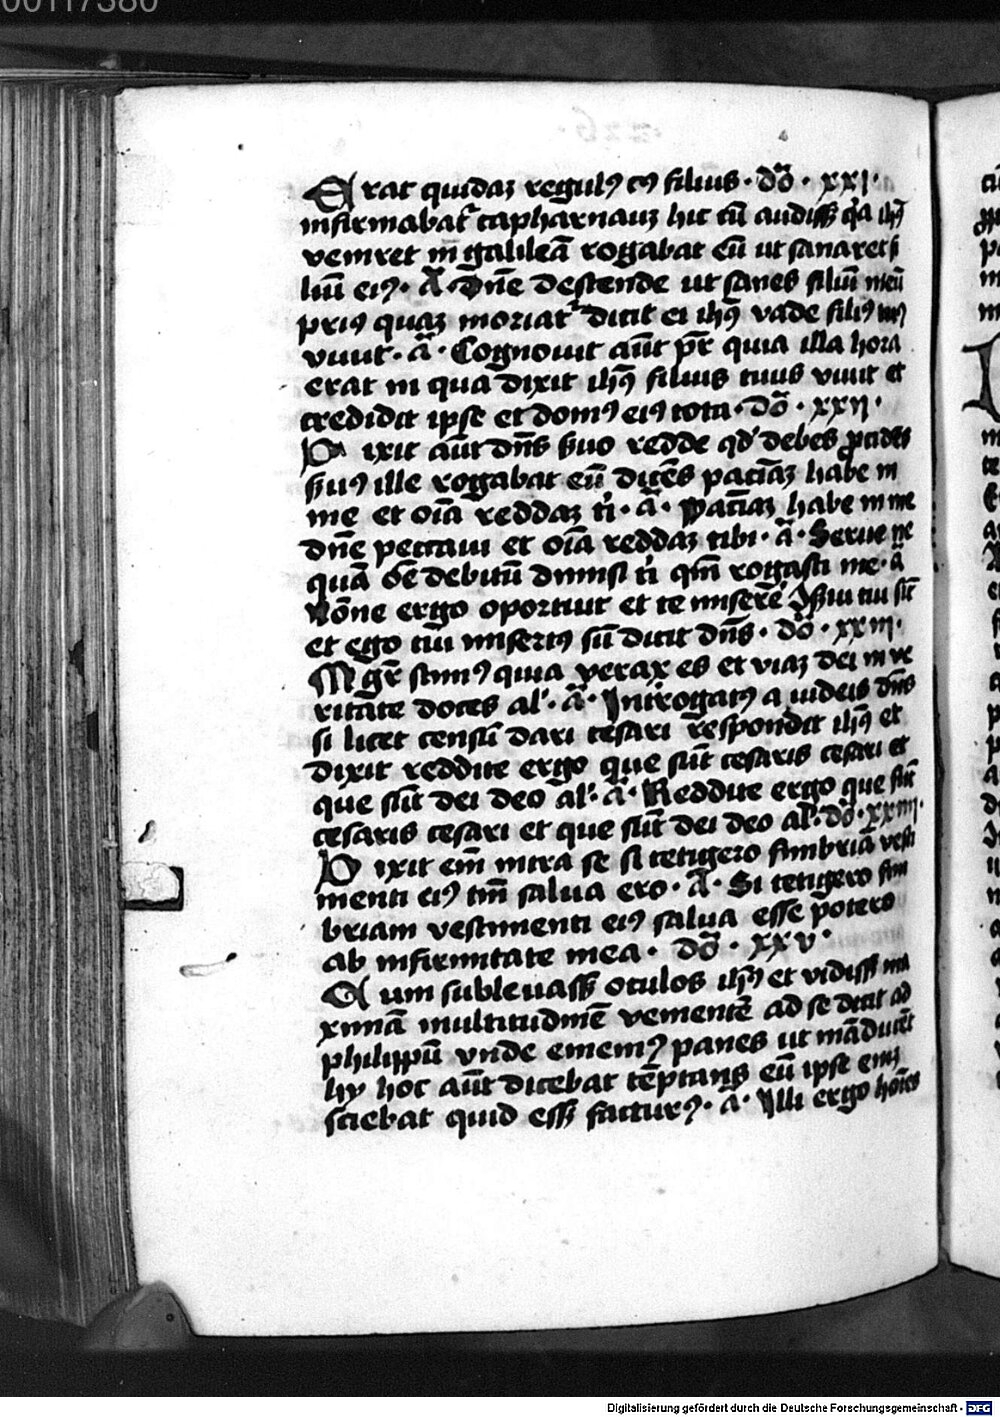 00117380
Erat quidaʒ regulꝰ cꝰ filius · do̅ · xxi ·
infirmabat᷑ capharnauʒ hic cu̅ audiss; qꝛa ihs̅
veniret in galilea̅ rogabat eu̅ ut sanaret fi
liu̅ eiꝰ · a̅ · Dn̅e descende ut sanes filiu̅ meu̅
priꝰ quaʒ moriat᷑ dicit ei ihs̅ vade filiꝰ tuꝰ
viuit · a̅ · Cognouit au̅t pr̅ quia illa hora
erat in qua dixit ihs̅ filius tuus viuit et
credidit ipse et domꝰ eiꝰ tota · do̅ · xxii ·
Dixit au̅t dn̅s s̅uo redde qd̕ debes p̱cides
s̅uꝰ ille rogabat eu̅ dice̅s pacia̅ʒ habe in
me et oi̅a reddaʒ ti̕ · a̅ · Pacia̅ʒ habe in me
dn̅e peccaui et oi̅a reddaʒ tibi · a̅ · Serue ne
qua̅ o̅e debitu̅ dimisi ti̕ qm̅ rogasti me · a̅
No̅ne ergo oportuit et te misere̅
et ego tui misertꝰ su̅ dicit dn̅s · do̅ · xxiii ·
Mgr̅ scimꝰ quia verax es et viaʒ dei in ve
ritate doces al̕ · a̅ · Int̅rogatꝰ a iudeis dn̅s
si licet censu̅ dari cesari respondit ihs̅ et
dixit reddite ergo que su̅t cesaris cesari et
que su̅t dei deo al̕ · a̅ · Reddite ergo que su̅t
cesaris cesari et que su̅t dei deo al̕ · do̅ · xxiiii ·
Dixit em̅ intra se si tetigero fimbria̅ vesti
menti eiꝰ tm̅ salua ero · a̅ · Si tetigero fim
briam vestimenti eiꝰ salua esse potero
ab infirmitate mea · do̅ · xxv ·
Cum subleuass; oculos ihs̅ et vidiss; ma
xima̅ multitudine̅ veniente̅ ad se dicit ad
philippu̅ vnde ememꝰ panes ut ma̅ducent
hy hoc au̅t dicebat te̅ptans eu̅ ipse eni̅
sciebat quid ess; facturꝰ · a̅ · Illi ergo ho̅i̅es
Digitalisierung gefördert durch die Deutsche Forschungsgemeinschaft - DFG